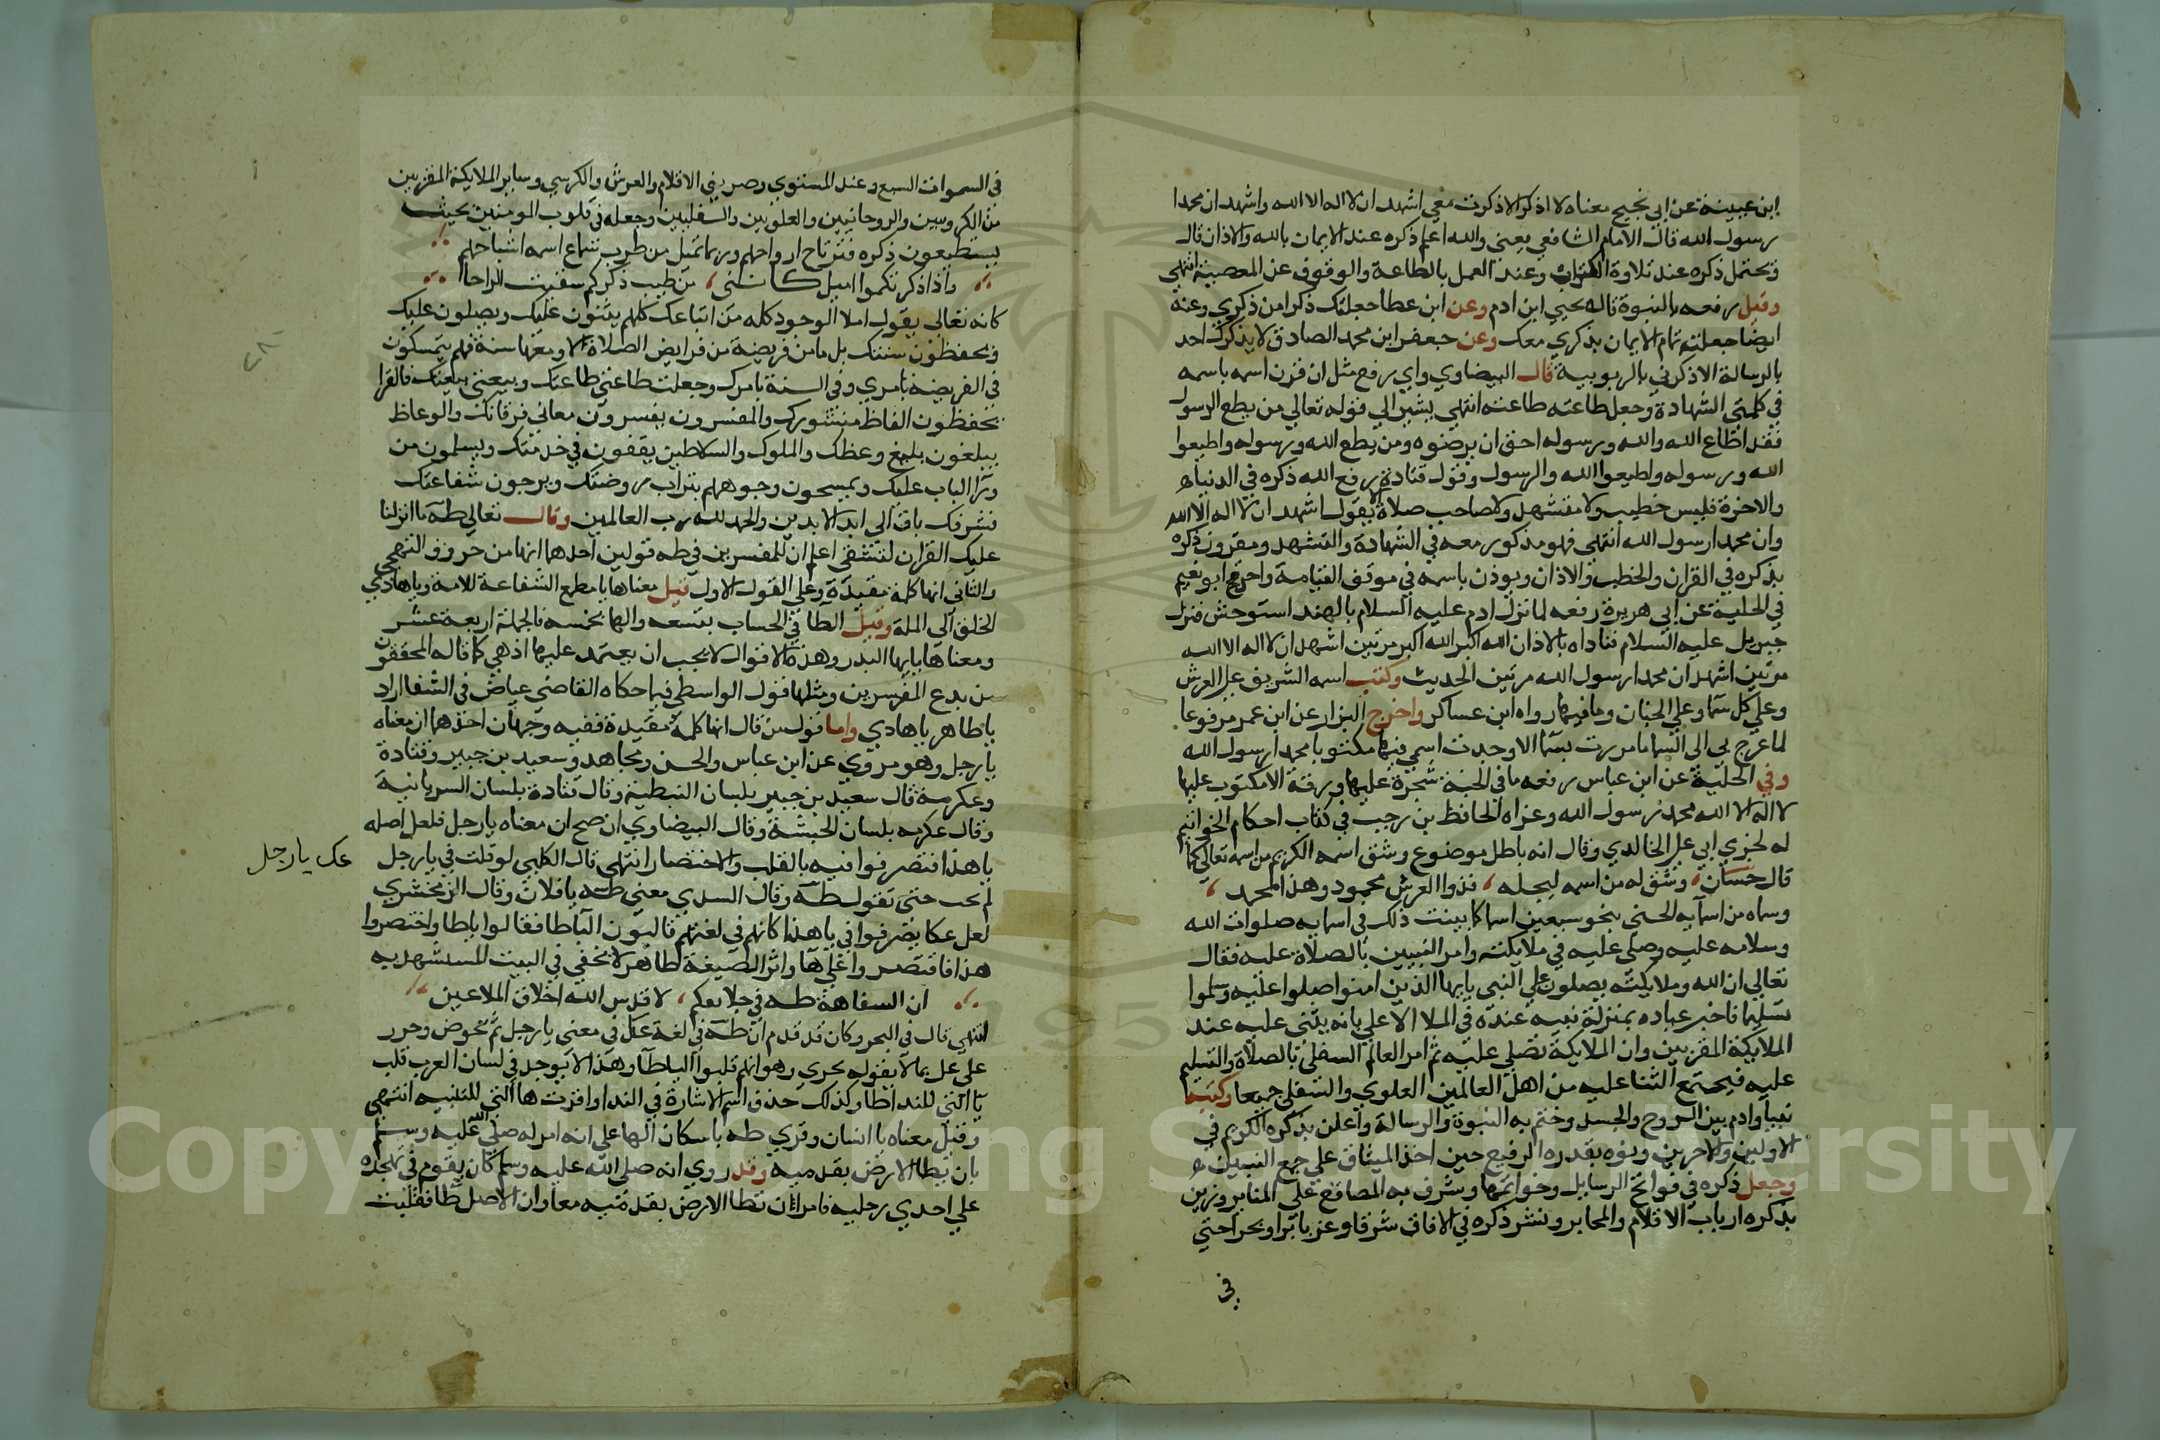 ابن عيينة عن ابي نجيح معناه لا اذكر الا ذكرت معي اشهد ان لا اله الا الله واشهد ان محمدا
رسول الله قال الامام الشافعي يعني والله اعلم ذكره عند الايمان بالله والاذان قال
ويحتمل ذكره عند تلاوة القران وعند العمل بالطاعة والوقوف عن المعصية انتهى
وقيل رفعه بالنبوة قاله يحيي ابن ادم وعن ابن عطا جعلتك ذكرا من ذكري وعنه
ايضا جعلت تمام الايمان بذكري معك وعن جعفر ابن محمد الصادق لا يذكرك احد
بالرسالة الا ذكرني بالربوبية قال البيضاوي واي رفع مثل ان قرن اسمه باسمه
في كلمتي الشهادة وجعل طاعته طاعته انتهى يشير الي قوله تعالي من يطع الرسول
فقد اطاع الله والله ورسوله احق ان يرضوه ومن يطع الله ورسوله واطيعوا
الله ورسوله واطيعوا الله والرسول وقول قتادة رفع الله ذكره في الدنيا
والاخرة فليس خطيب ولا متشهد ولا صاحب صلاة الا يقول اشهد ان لا اله الا الله
وان محمدا رسول الله انتهى فهو مذكور معه في الشهادة والتشهد ومقرون ذكره
بذكره في القران والخطب والاذان ويوذن باسمه في موقف القيامة واخرج ابو نعيم
في الحلية عن ابي هريرة رفعه لما نزل ادم عليه السلام بالهند استوحش فنزل
جبريل عليه السلام فناداه بالاذان الله اكبر الله اكبر مرتين اشهد ان لا اله الا الله
مرتين اشهد ان محمدا رسول الله مرتين الحديث وكتب اسمه الشريف علي العرش
وعلي كل سما وعلي الجنان وما فيها رواه ابن عساكر واخرج البزار عن ابن عمر مرفوعا
لما عرج بي الي السما ما مررت بسما الا وجدت اسمي فيها مكتوبا محمد رسول الله
وفي الحلية عن ابن عباس رفعه ما في الجنة شجرة عليها ورقة الا مكتوب عليها
لا اله الا الله محمد رسول الله وعزاه الحافظ بن رجب في كتاب احكام الخواتيم
له لجزي ابي علي الخالدي وقال انه باطل موضوع وشق اسمه الكريم من اسمه تعالي كما
قال حسان وشق له من اسمه ليجله فذوا العرش محمود وهذا محمد
وسماه من اسمايه الحسني بنحو سبعين اسما كما بينت ذلك في اسمايه صلوات الله
وسلامه عليه وصلي عليه في ملايكته وامر النبيين بالصلاة عليه فقال
تعالي ان الله وملايكته يصلون علي النبي يايها الذين امنوا صلوا عليه وسلموا
تسليما فاخبر عباده بمنزلة نبيه عنده في الملا الاعلي بانه يثني عليه عند
الملايكة المقربين وان الملايكة تصلي عليه ثم امر العالم السفلي بالصلاة والتسليم
عليه فيجتمع الثنا عليه من اهل العالمين العلوي والسفلي جميعا وكتبه
نبيا وادم بين الروح والجسد وختم به النبوة والرسالة واعلن بذكره الكريم في
الاولين والاخرين ونوه بقدره الرفيع حين اخذ الميثاق علي جميع النبيين
وجعل ذكره في فواتح الرسايل وخواتمها وشرف به المصاقع علي المنابر وزين
بذكره ارباب الاقلام والمحابر ونشر ذكره في الافاق شرقا وغربا برا وبحرا حتي
في
في السموات السبع وعند المستوي وصريف الاقلام والعرش والكرسي وساير الملايكة المقربين
من الكروبيين والروحانيين والعلويين والسفليين وجعله في قلوب المومنين بحيث
يستطيعون ذكره فترتاح ارواحهم وربما تميل من طرب سماع اسمه اشباحهم
واذا ذكرتكموا اميل كانني من طيب ذكركم سقيت الراحا
كانه تعالي يقول املا الوجود كله من اتباعك كلهم يثنون عليك ويصلون عليك
ويحفظون سنتك بل ما من فريضة من فرايض الصلاة الا ومعها سنة فهم يتمسكون
في الفريضة بامري وفي السنة بامرك وجعلت طاعتي طاعتك وبيعتي بيعتك فالقرا
يحفظون الفاظ منشورك والمفسرون يفسرون معاني فرقانك والوعاظ
يبلغون بليغ وعظك والملوك والسلاطين يقفون في خدمتك ويسلمون من
ورا الباب عليك ويمسحون وجوههم بتراب روضتك ويرجون شفاعتك
فشرفك باق الي ابد الابدين والحمد لله رب العالمين وقال تعالي طه ما انزلنا
عليك القران لتشقي اعلم ان للمفسرين في طه قولين احدها انها من حروف التهجي
والثاني انها كلمة مفيدة وعلي القول الاول قيل معناها يا مطمع الشفاعة للامة ويا هادي
الخلق الي الملة وقيل الطا في الحساب بتسعه والها بخمسه فالجملة اربعة عشر
ومعناها يايها البدر وهذه الاقوال لا يجب ان يعتمد عليها اذ هي كما قاله المحققون
من بدع المفسرين ومثلها قول الواسطي فيما حكاه القاضي عياض في الشفا اراد
يا طاهر يا هادي واما قول من قال انها كلمة مفيدة ففيه وجهان احدهما ان معناه
يا رجل وهو مروي عن ابن عباس والحسن ومجاهد وسعيد بن جبير وقتادة
وعكرمة قال سعيد بن جبير بلسان النبطية وقال قتادة بلسان السريانية
وقال عكرمه بلسان الحبشة وقال البيضاوي ان صح ان معناه يا رجل فلعل اصله
يا هذا فتصرفوا فيه بالقلب والاختصار انتهى قال الكلبي لو قلت في يا رجل
عك يا رجل
لم يجب حتي تقول طه وقال السدي معني طه يا فلان وقال الزمخشري
لعل عكا يصرفوا في يا هذا كانهم في لغتهم قالبون اليا طا فقالوا يا طا واختصروا
هذا فاقتصروا علي ها واثر الصيغة ظاهر لا يخفي في البيت المستشهد به
ان السفاهة طه في خلايقكم لا قدس الله اخلاق الملاعين
انتهي قال في البحر وكان قد قدم ان طه في لغة عك في معني يا رجل ثم تخرص وحرر
علي عك بما لا يقوله نحوي وهو انهم قلبوا اليا طا وهذا لا يوجد في لسان العرب قلب
يا التي للندا طا وكذلك حذف اسم الاشارة في الندا واقرت ها التي للتنبيه انتهي
وقيل معناه يا انسان وقري طه باسكان الها علي انه امر له صلي الله عليه وسلم
بان يطا الارض بقدميه وقد روي انه صلي الله عليه وسلم كان يقوم في تهجده
علي احدي رجليه فامر ان تطا الارض بقدميه معا وان الاصل طا فقلبت